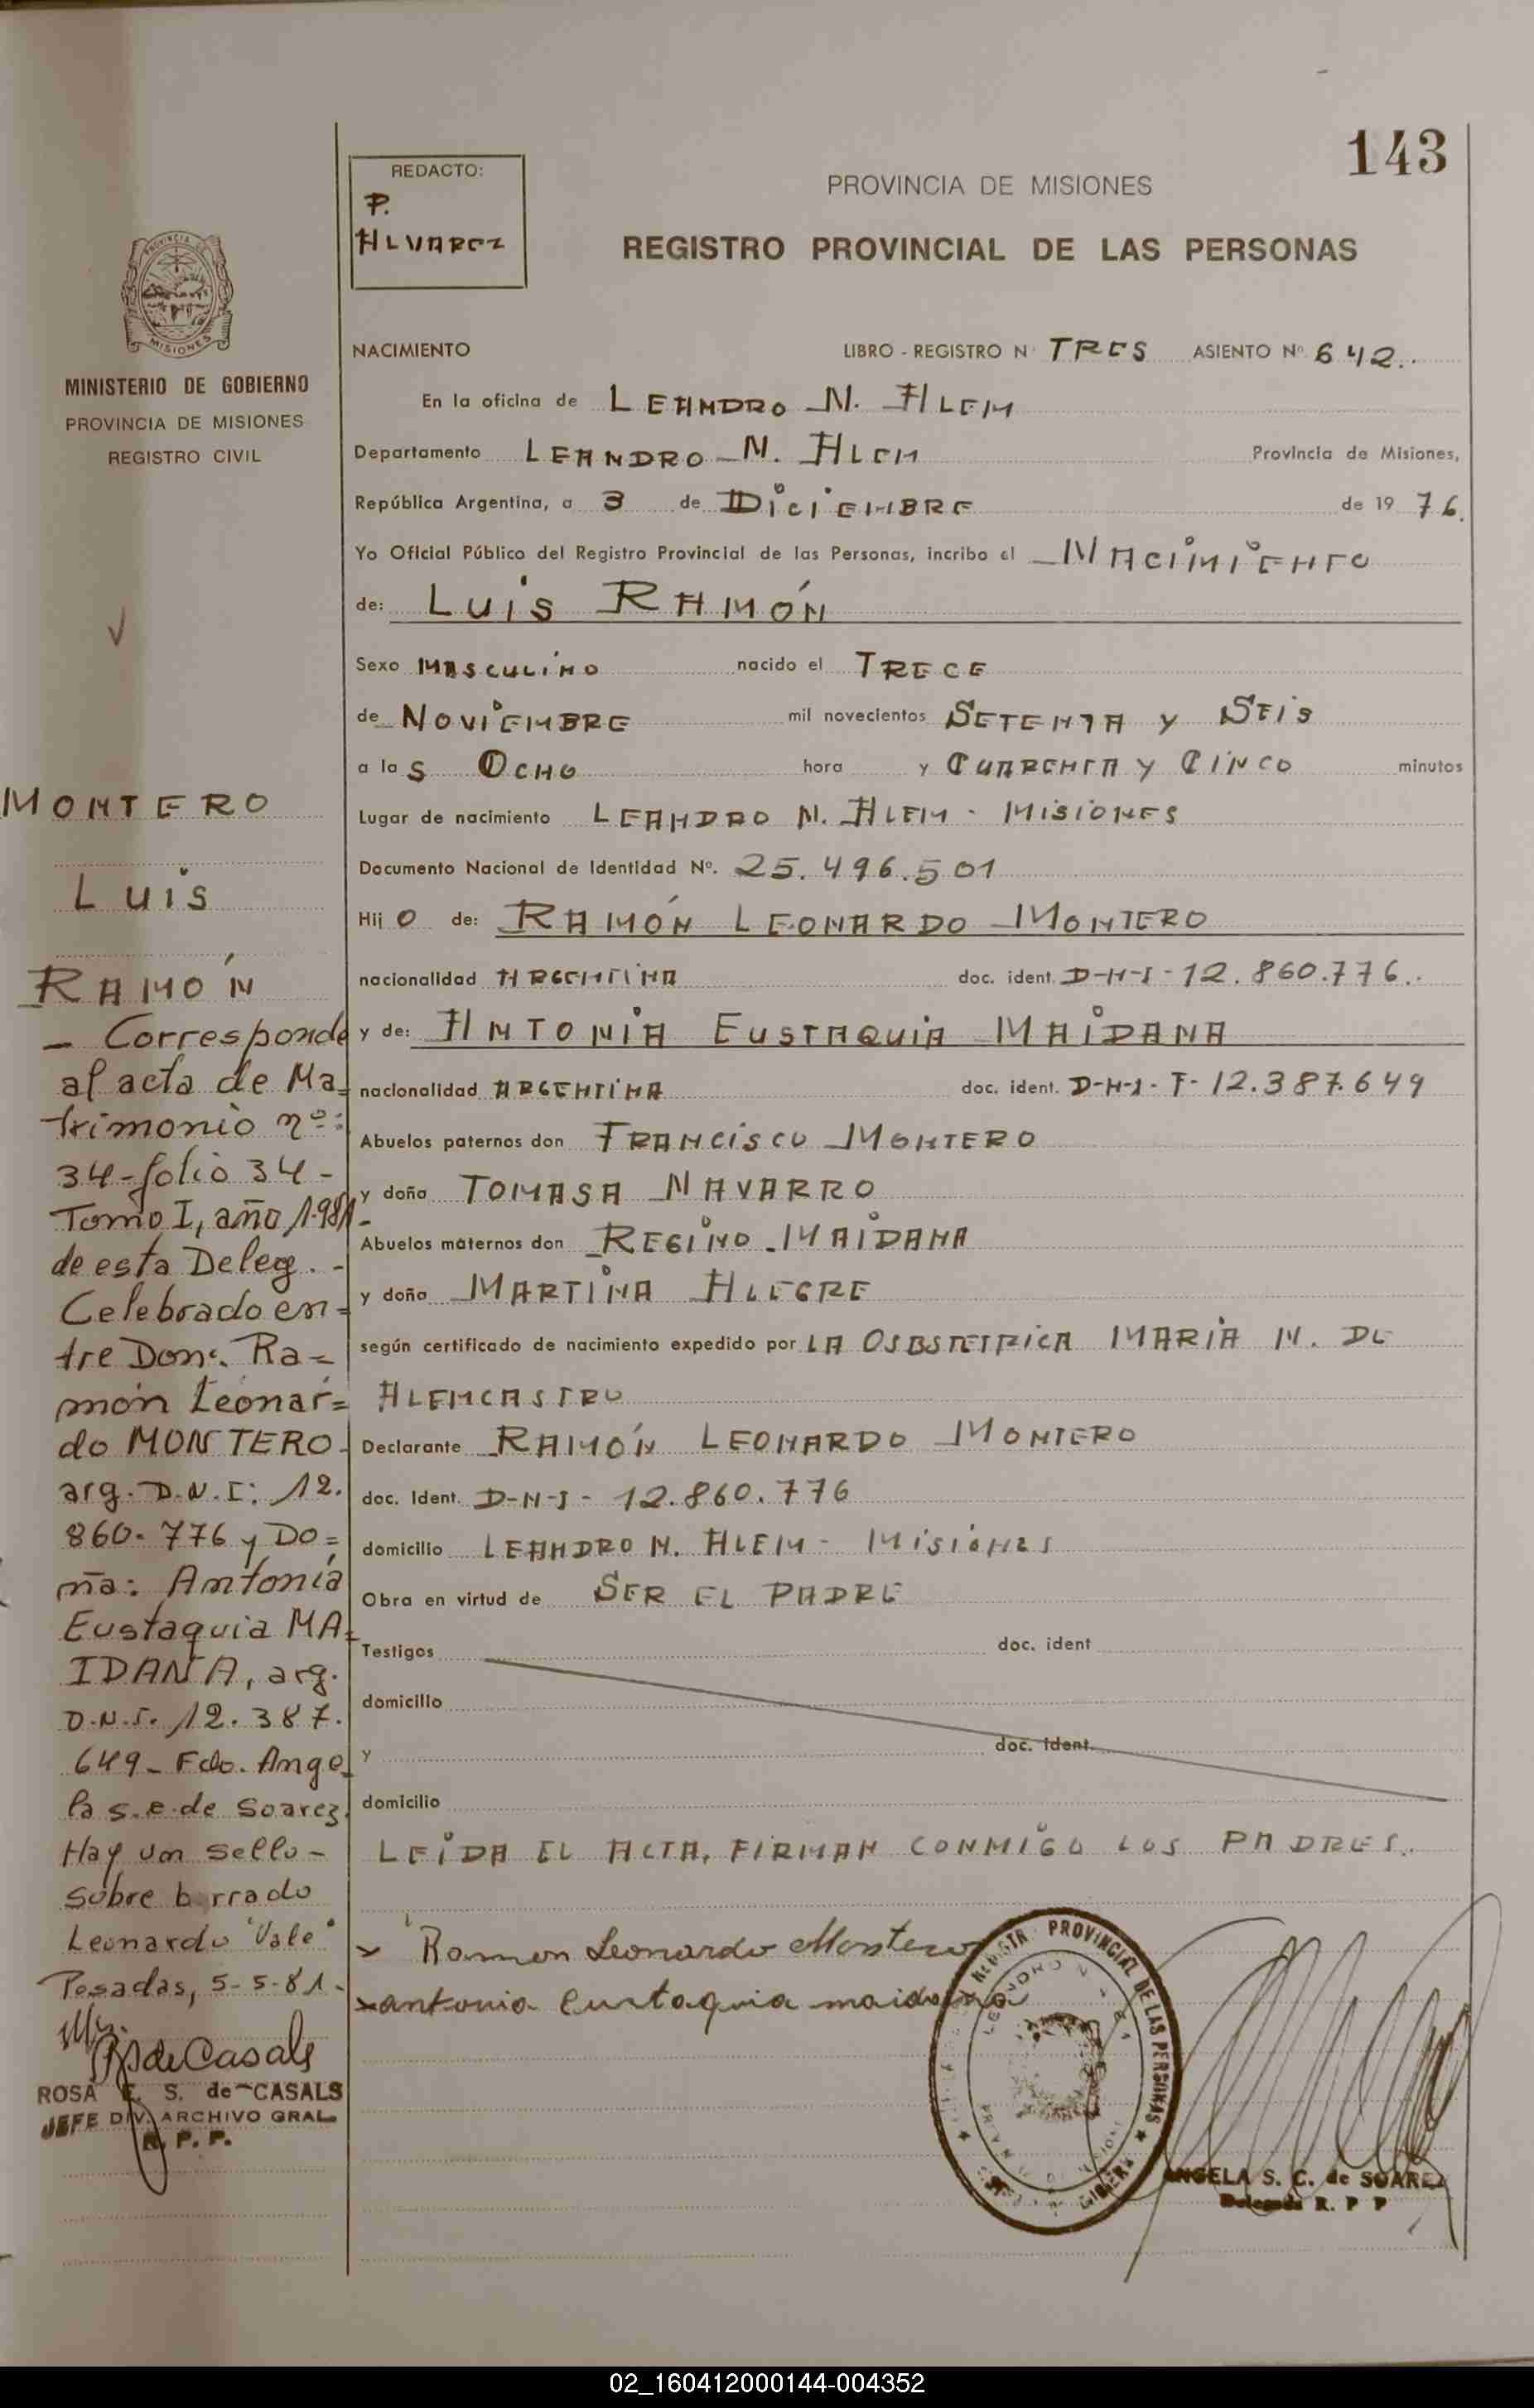 143
REDACTO:
P.
ALVAREZ
PROVINCIA DE MISIONES
REGISTRO PROVINCIAL DE LAS PERSONAS
PROVINCIA DE
MISIONES
MINISTERIO DE GOBIERNO
PROVINCIA DE MISIONES
REGISTRO CIVIL
NACIMIENTO LIBRO - REGISTRO N° TRES ASIENTO N° 642.
En la oficina de LEANDRO N. ALEM
Departamento LEANDRO N. ALEM Provincia de Misiones,
República Argentina, a 3 de DICIEMBRE de 19 76.
Yo Oficial Público del Registro Provincial de las Personas, incribo el NACIMIENTO
de: LUIS RAMÓN
Sexo MASCULINO nacido el TRECE
de NOVIEMBRE mil novecientos SETENTA y SEIS
a las OCHO hora y CUARENTA y CINCO minutos
Lugar de nacimiento LEANDRO N. ALEM - MISIONES
Documento Nacional de Identidad N°. 25.496.501
Hijo de: RAMÓN LEONARDO MONTERO
nacionalidad ARGENTINA doc. ident. D-N-I- 12.860.776.
y de: ANTONIA EUSTAQUIA MAIDANA
nacionalidad ARGENTINA doc. ident. D-N-I- F- 12.387.649
Abuelos paternos don FRANCISCO MONTERO
y doña TOMASA NAVARRO
Abuelos maternos don REGINO MAIDANA
y doña MARTINA ALEGRE
según certificado de nacimiento expedido por LA OSBSTETRICA MARIA N. DE
ALEMCASTRO
Declarante RAMÓN LEONARDO MONTERO
doc. Ident. D-N-I- 12.860.776
domicilio LEANDRO N. ALEM - MISIONES
Obra en virtud de SER EL PADRE
Testigos doc. ident
domicilio
y doc. ident.
domicilio
LEIDA EL ACTA, FIRMAN CONMIGO LOS PADRES.
Ramon Leonardo Montero
antonia Eustaquia maidana
REGISTR. PROVINCIAL DE LAS PERSONAS
ANGELA S. C. de SUAREZ
Delegada R. P P
MONTERO
LUIS
RAMÓN
- Corresponde
al acta de Ma=
trimonio nº:
34-folio 34-
Tomo I, año 1.981-
de esta Deleg. -
Celebrado en=
tre Don: Ra=
món Leonar=
do MONTERO-
arg. D.N.I: 12.
860.776 y Do=
ña: Antonia
Eustaquia MA=
IDANA, arg.
D.N.I. 12.387.
649- Fdo. Ange
la S.e.de Soarez.
Hay un sello-
Sobre borrado
Leonardo "Vale"
Posadas, 5-5-81.-
RSdeCasals
ROSA E. S. de CASALS
JEFE DIV. ARCHIVO GRAL
R. P. P.
02_160412000144-004352